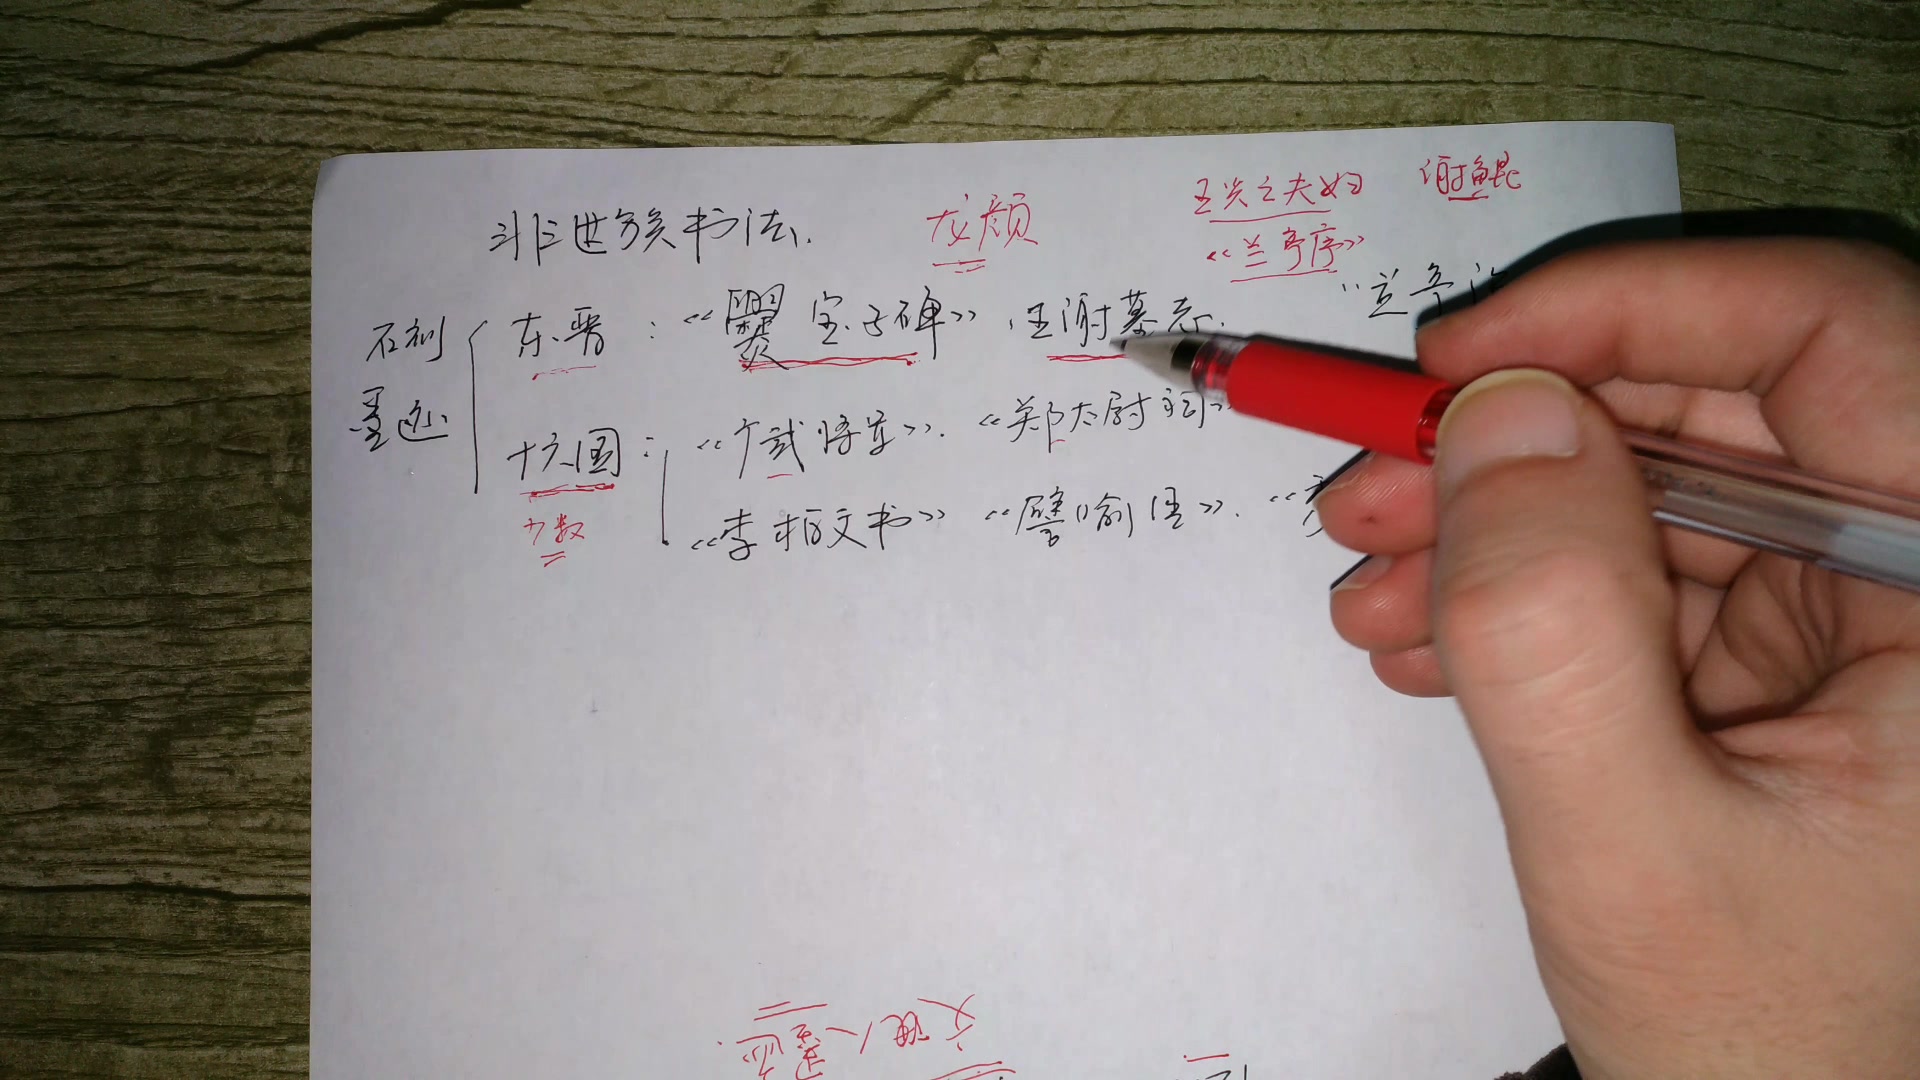 王兴之夫妇 谢鲲
非世族书法. 龙颜
《兰亭序》
"兰亭论
石刻 东晋：《爨宝子碑》，王谢墓志.
墨迹
十六国：《广武将军》.《郑太尉祠》
少数
《李柏文书》《譬喻经》.《
文理人墨迹